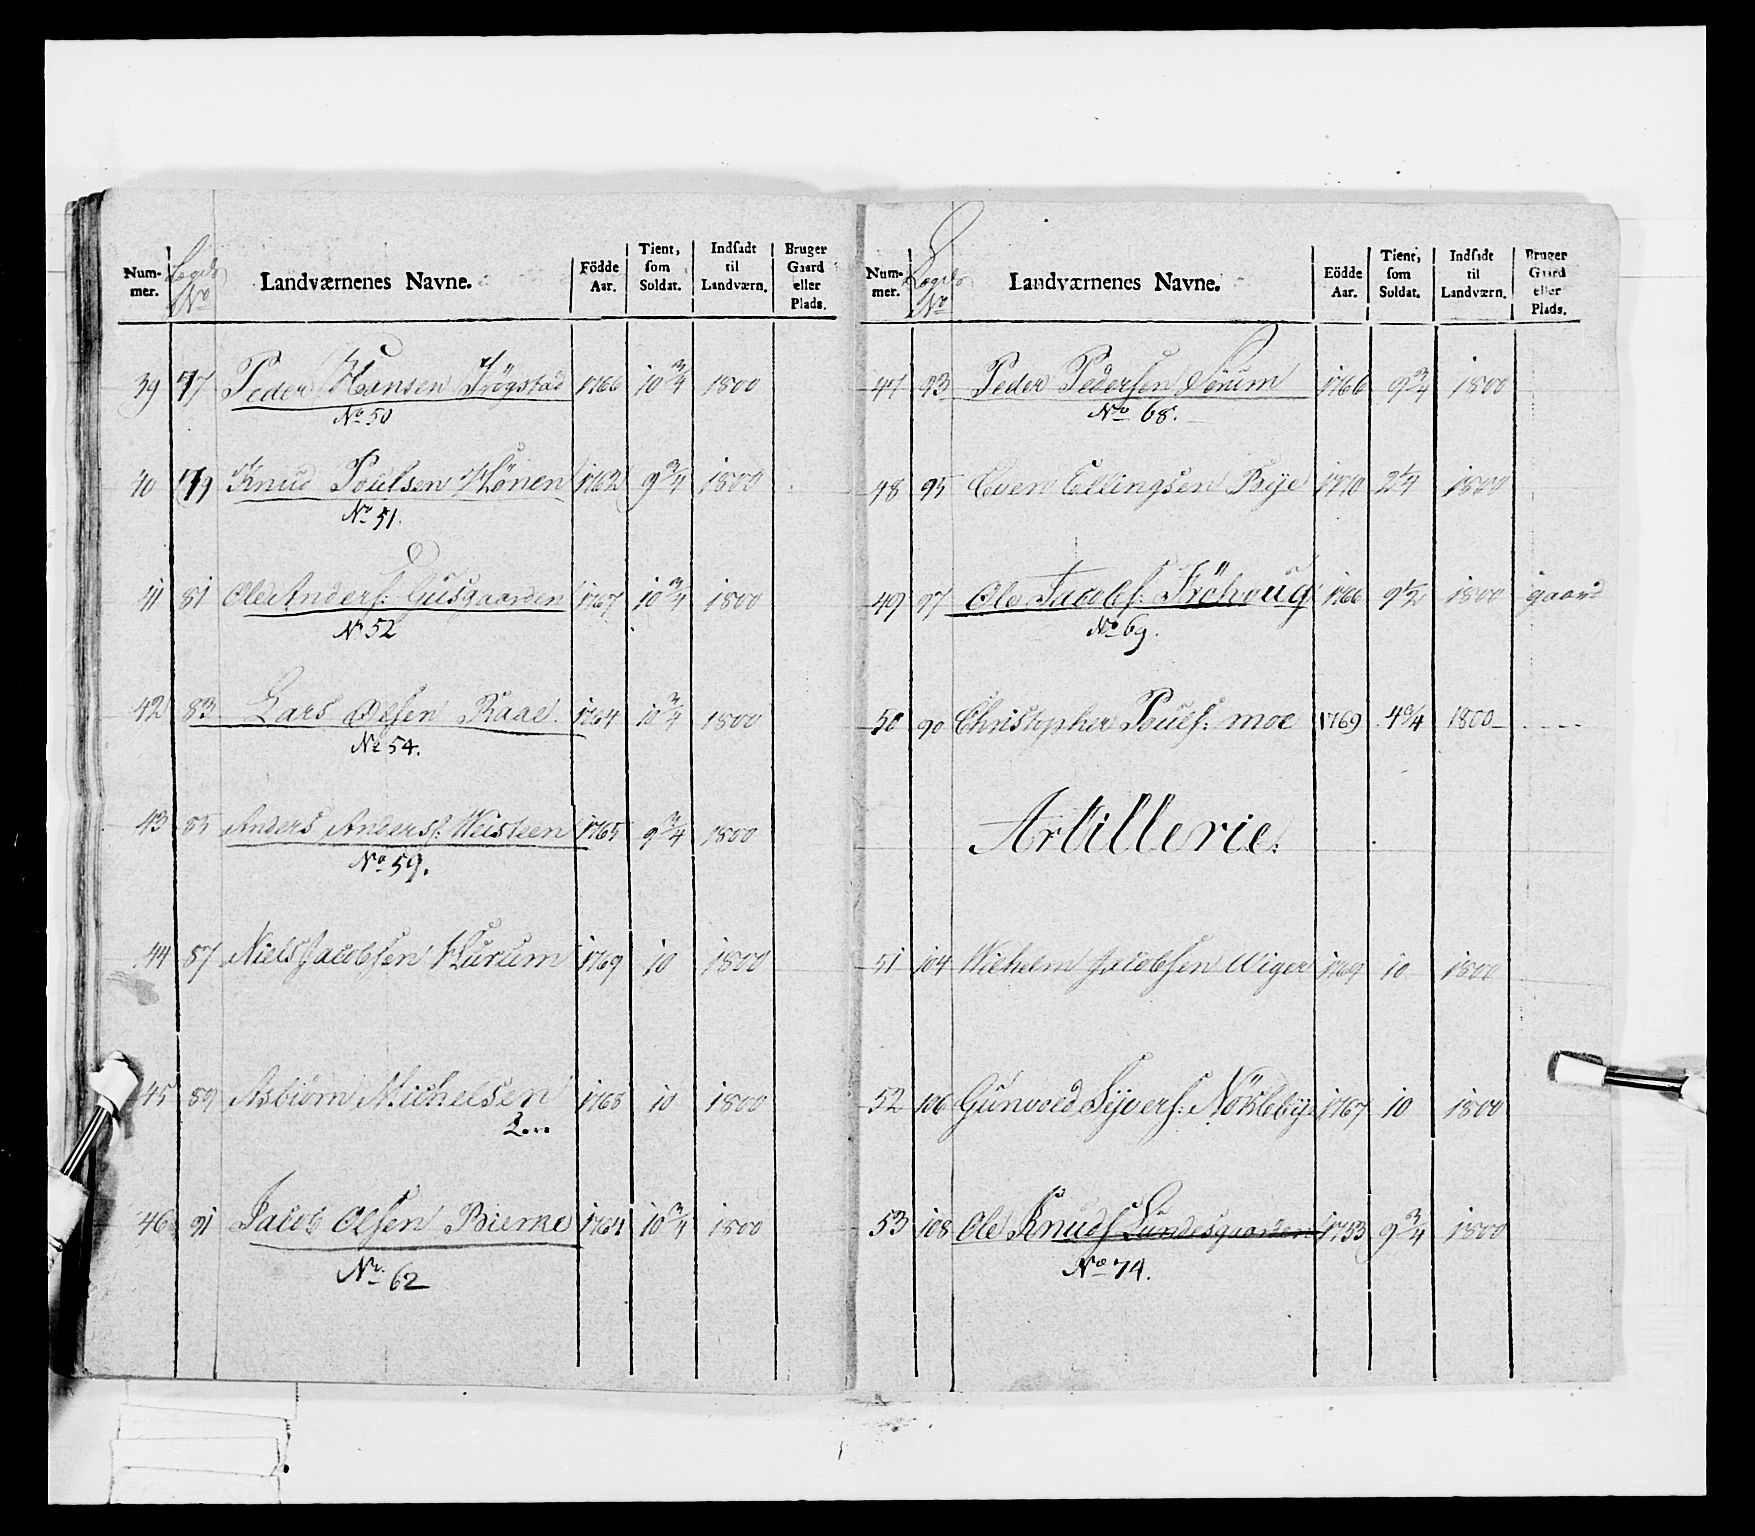 Num-mer. Legds No Landværnenes Navne. Födde Aar. Tient, som Soldat. Indsadt til Landværn. Bruger Gaard eller Plads.
39 77 Peder Hansen Frögstad 1766 10 3/4 1800
No 50
40 79 Knud Poulsen Hönen 1762 9 3/4 1800
No 51.
41 81 Ole Anders: Gusgaarden 1767 10 3/4 1800
No 52
42 83 Lars Olsen Raae 1764 10 3/4 1800
No 54.
43 85 Anders Anders: Weisteen 1765 9 3/4 1800
No 59.
44 87 Niels Jacobsen Hurum 1769 10 1800
45 89 Asbiörn Michelsen 1768 10 1800
46 91 Jacob Olsen Bierke 1764 10 3/4 1800
No. 62
Num-mer. Legds No Landværnenes Navne. Födde Aar. Tient, som Soldat. Indsadt til Landværn. Bruger Gaard eller Plads.
47 93 Peder Pedersen Sörum 1766 9 3/4 1800
No 68.
48 95 Even Ellingsen Bye 1770 2 1/4 1800
49 97 Ole Jacobs: Fröhoug 1766 9 1/2 1800 gaard
No 69.
50 90 Christopher Pouls: moe 1769 4 /4 1800
Artillerie.
51 104 Wilhelm Jacobsen Wiger 1769 10 1800
52 106 Gunvod Syvers: Nökleby 1767 10 1800
53 108 Ole Knuds Lundesgaarden 1753 9 3/4 1800
No 74.